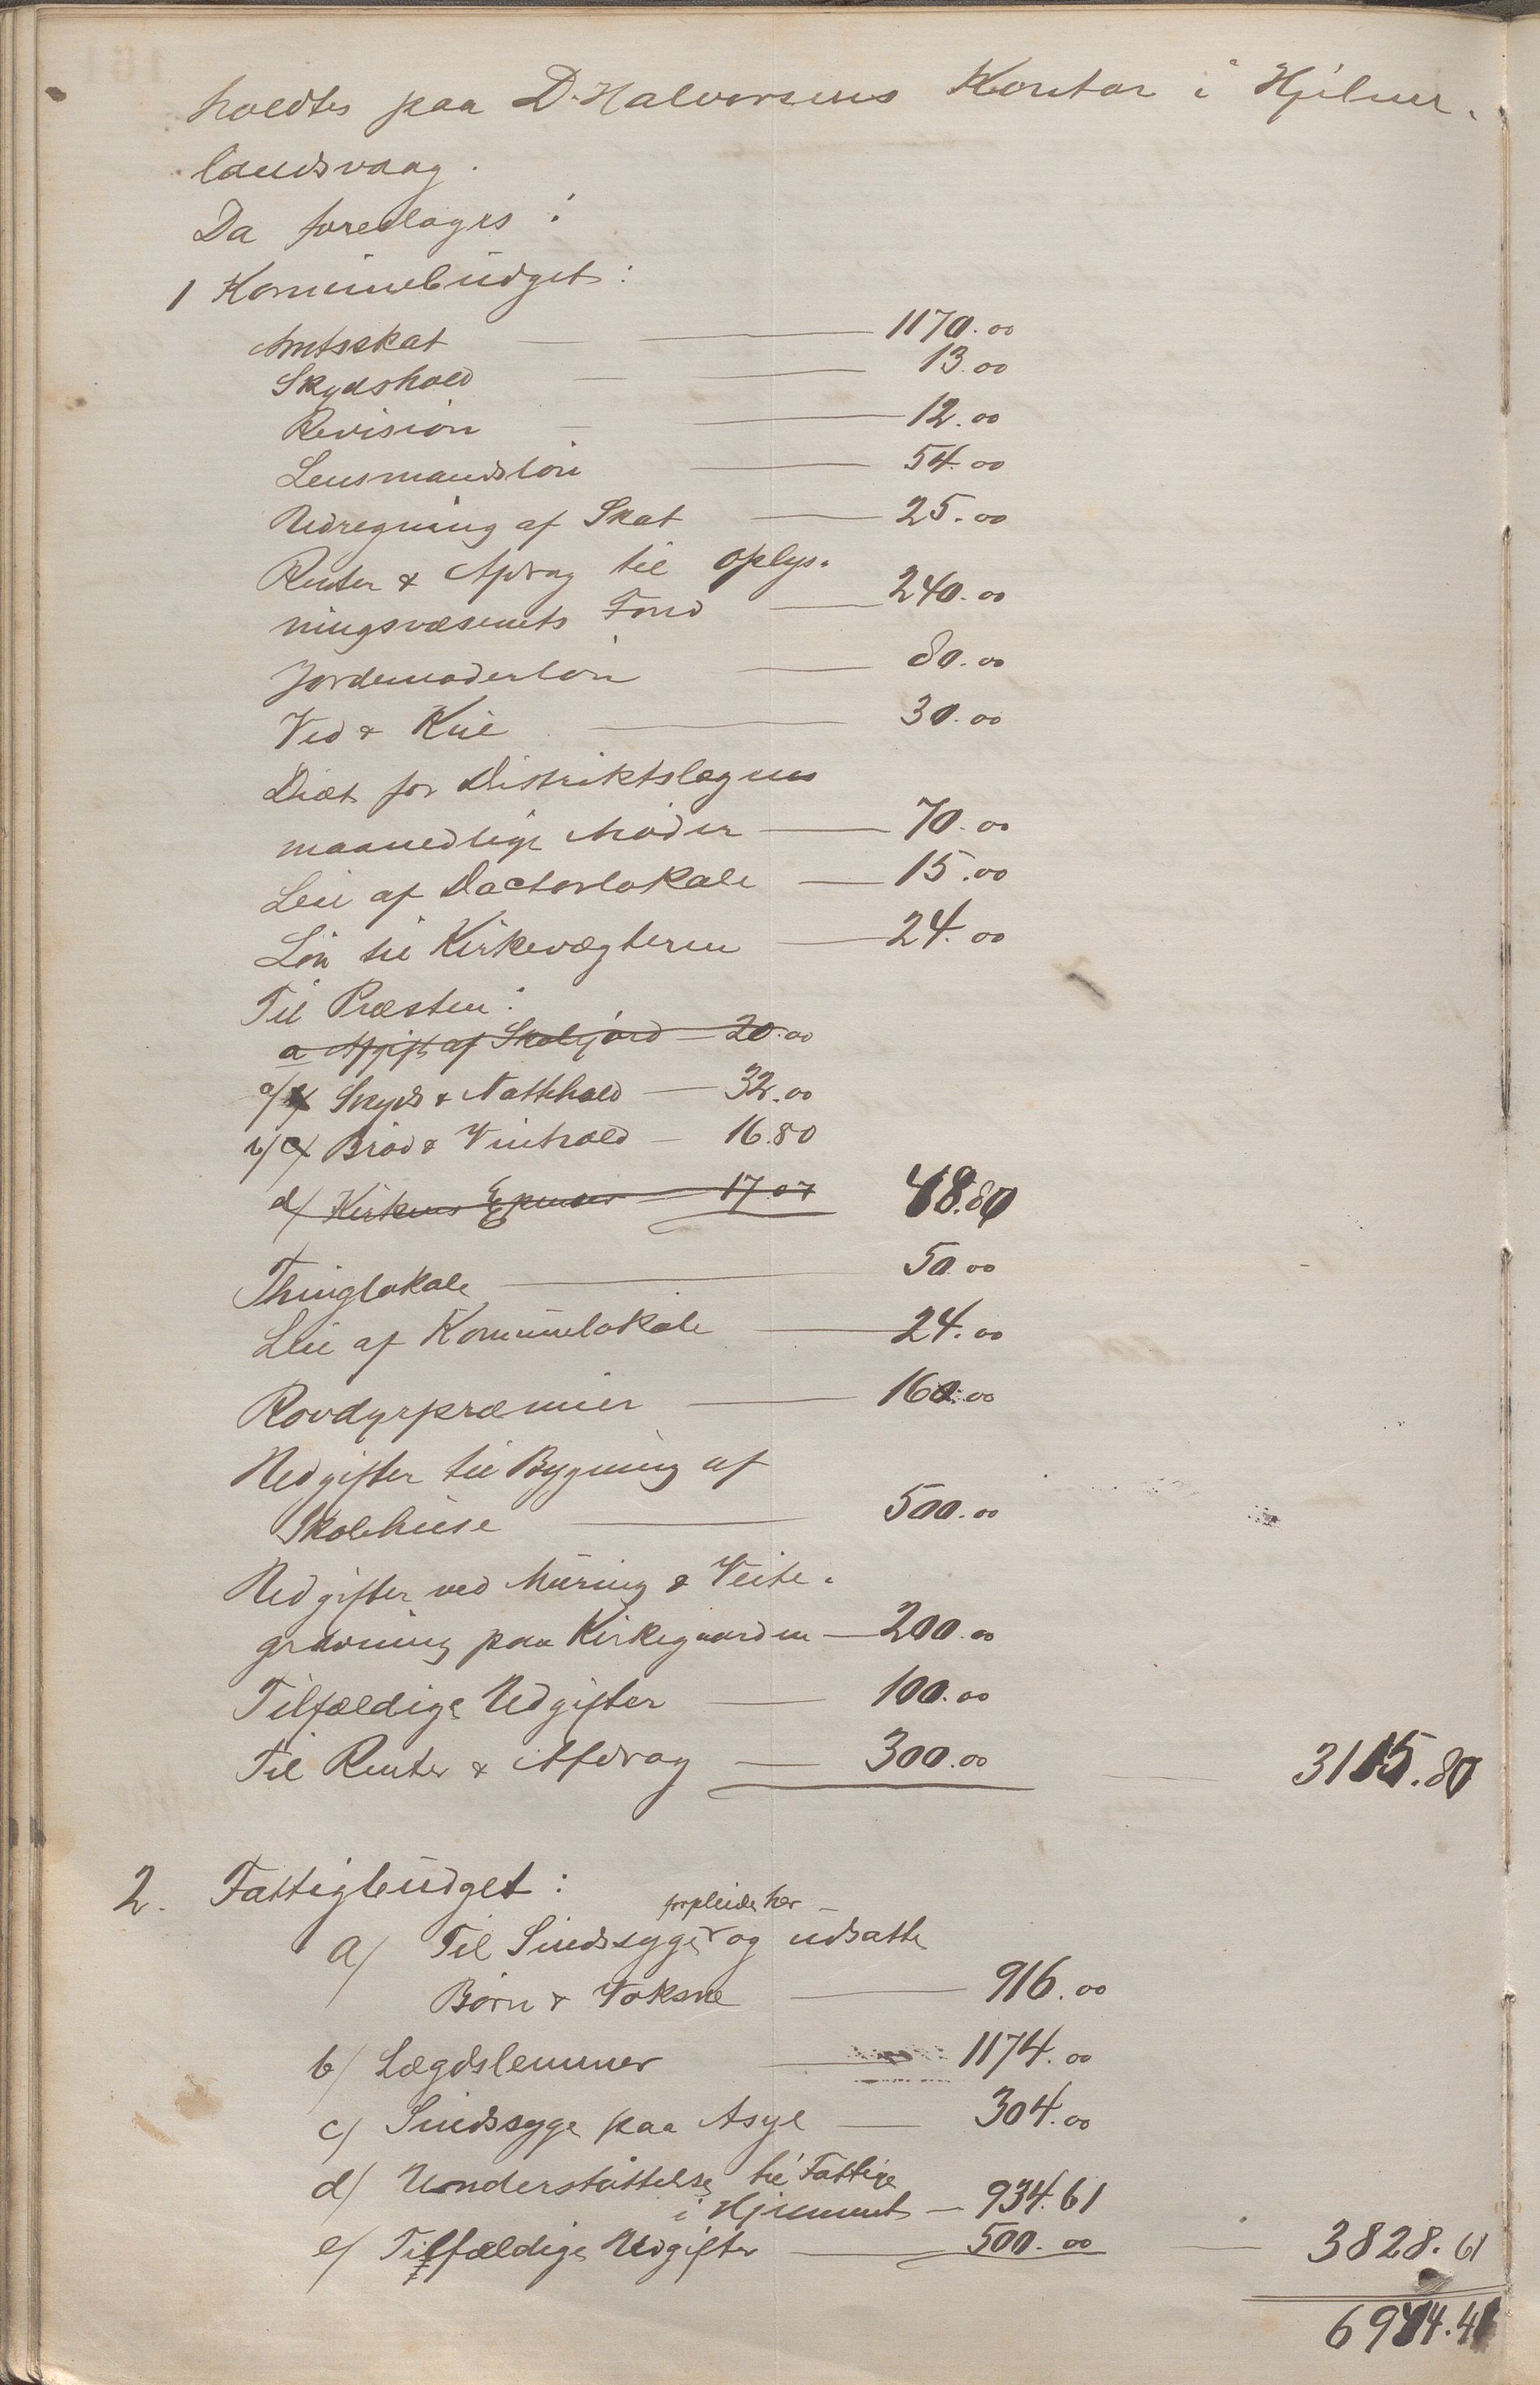 holdtes paa D. Halvorsens Kontor i Hjelme-
landsvaag.
Da foretages:
1 Kommunebudget:
Amtsskat — 1170.00
Skydshold — 13.00
Revision — 12.00
Lensmandsløn — 54.00
Udregning af Skat — 25.00
Renter & Afdrag til Oplys-
ningsvæsenets Fond — 240.00
Jordemoderløn — 80.00
Ved & Kul — 30.00
Diæt for Distriktslægens
maanedlige Møder — 70.00
Leie af Doctorlokale — 15.00
Løn til Kirkevægteren — 24.00
Til Præsten:
a Afgift af Skolejord — 20.00
a/ Skyds & Nattehold — 32.00
b/ c/ Brød & Vinhold — 16.80
d/ Kirkens Expenser — 17.07 48.80
Thinglokale — 50.00
Leie af Kommunelokale — 24.00
Rovdyrpræmier — 160.00
Udgifter til Bygning af
Skolehuse — 500.00
Udgifter ved Muring & Veite-
gravning paa Kirkegaarden — 200.00
Tilfældige Udgifter — 100.00
Til Renter & Afdrag — 300.00 — 3115.80
2. Fattigbudget:
forpleiede her
a/ Til Sindssyge og udsatte
Børn & Voksne — 916.00
b/ Lægdslemmer — 1174.00
c/ Sindssyge paa Asyl — 304.00
d/ Understøttelse til Fattige
i Hjemmet — 934.61
e/ Tilfældige Udgifter — 500.00 — 3828.61
6944.41